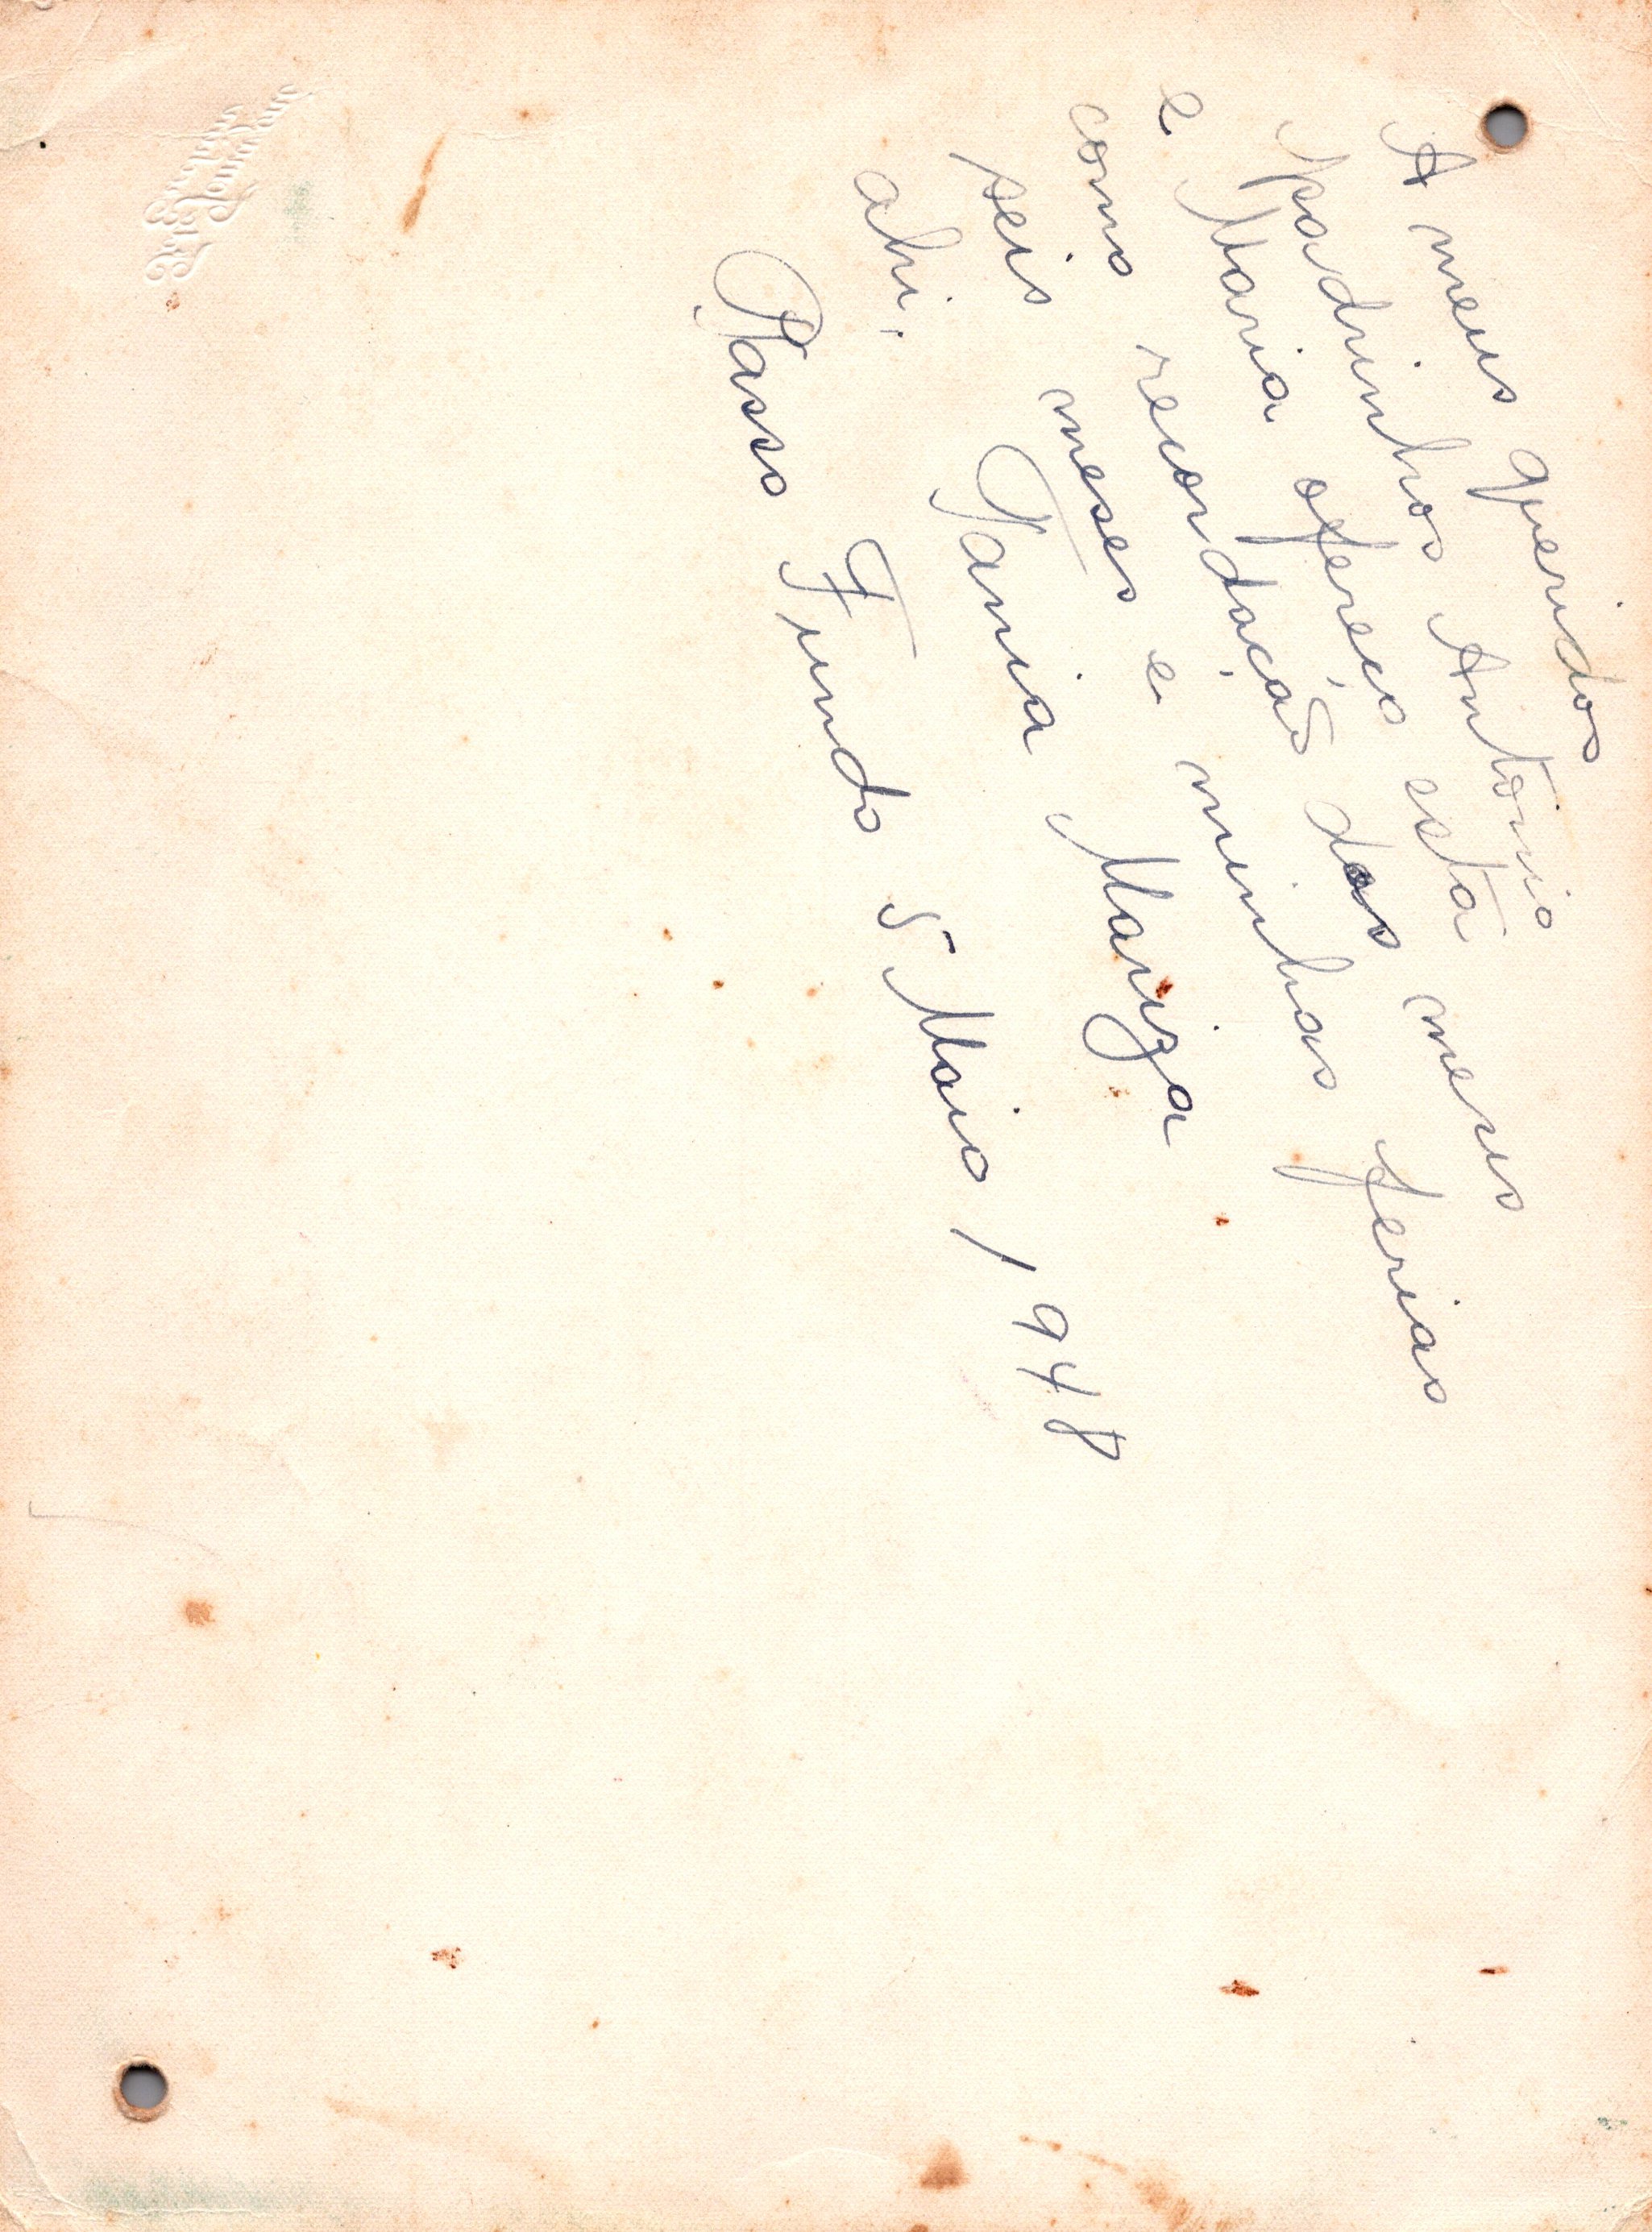 A meus queridos
padrinhos Antonio
e Maria ofereço esta
como recordação dos meus
seis meses e minhas ferias
ahi.
Tania Mariza
Passo Fundo 5 Maio 1948